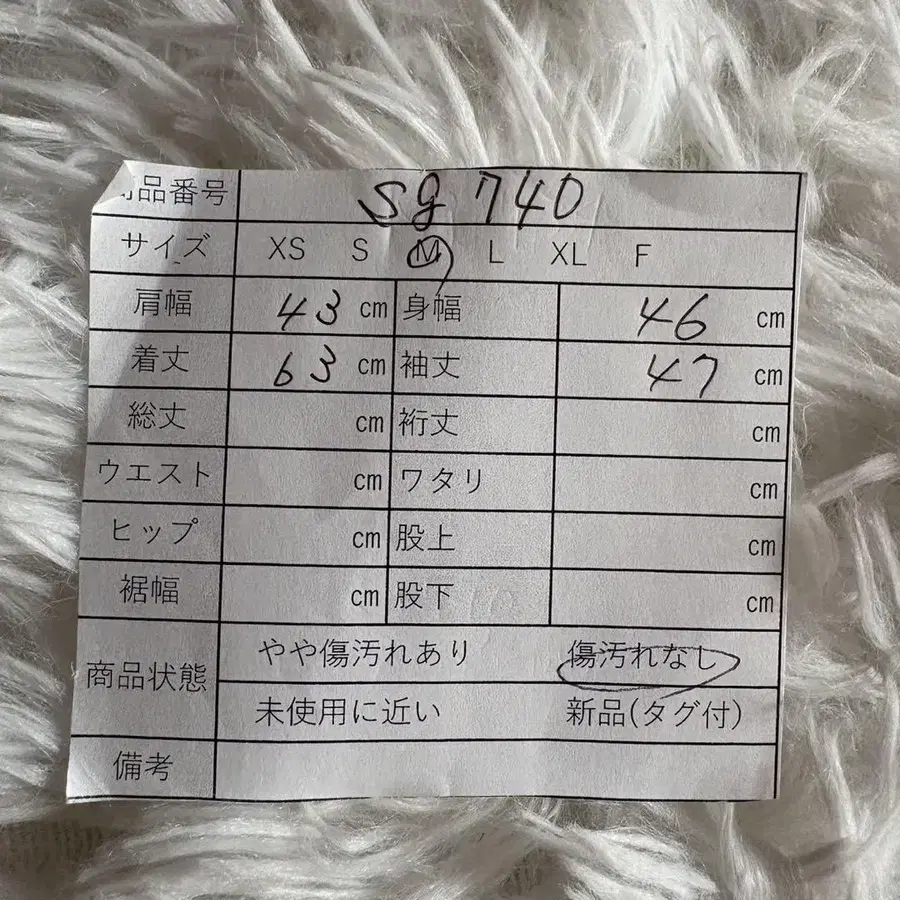 商品番号 Sg 740
サイズ XS S M L XL F
肩幅 43 cm 身幅 46 cm
着丈 63 cm 袖丈 47 cm
総丈 cm 裄丈 cm
ウエスト cm ワタリ cm
ヒップ cm 股上 cm
裾幅 cm 股下 cm
商品状態 やや傷汚れあり 傷汚れなし
未使用に近い 新品(タグ付)
備考